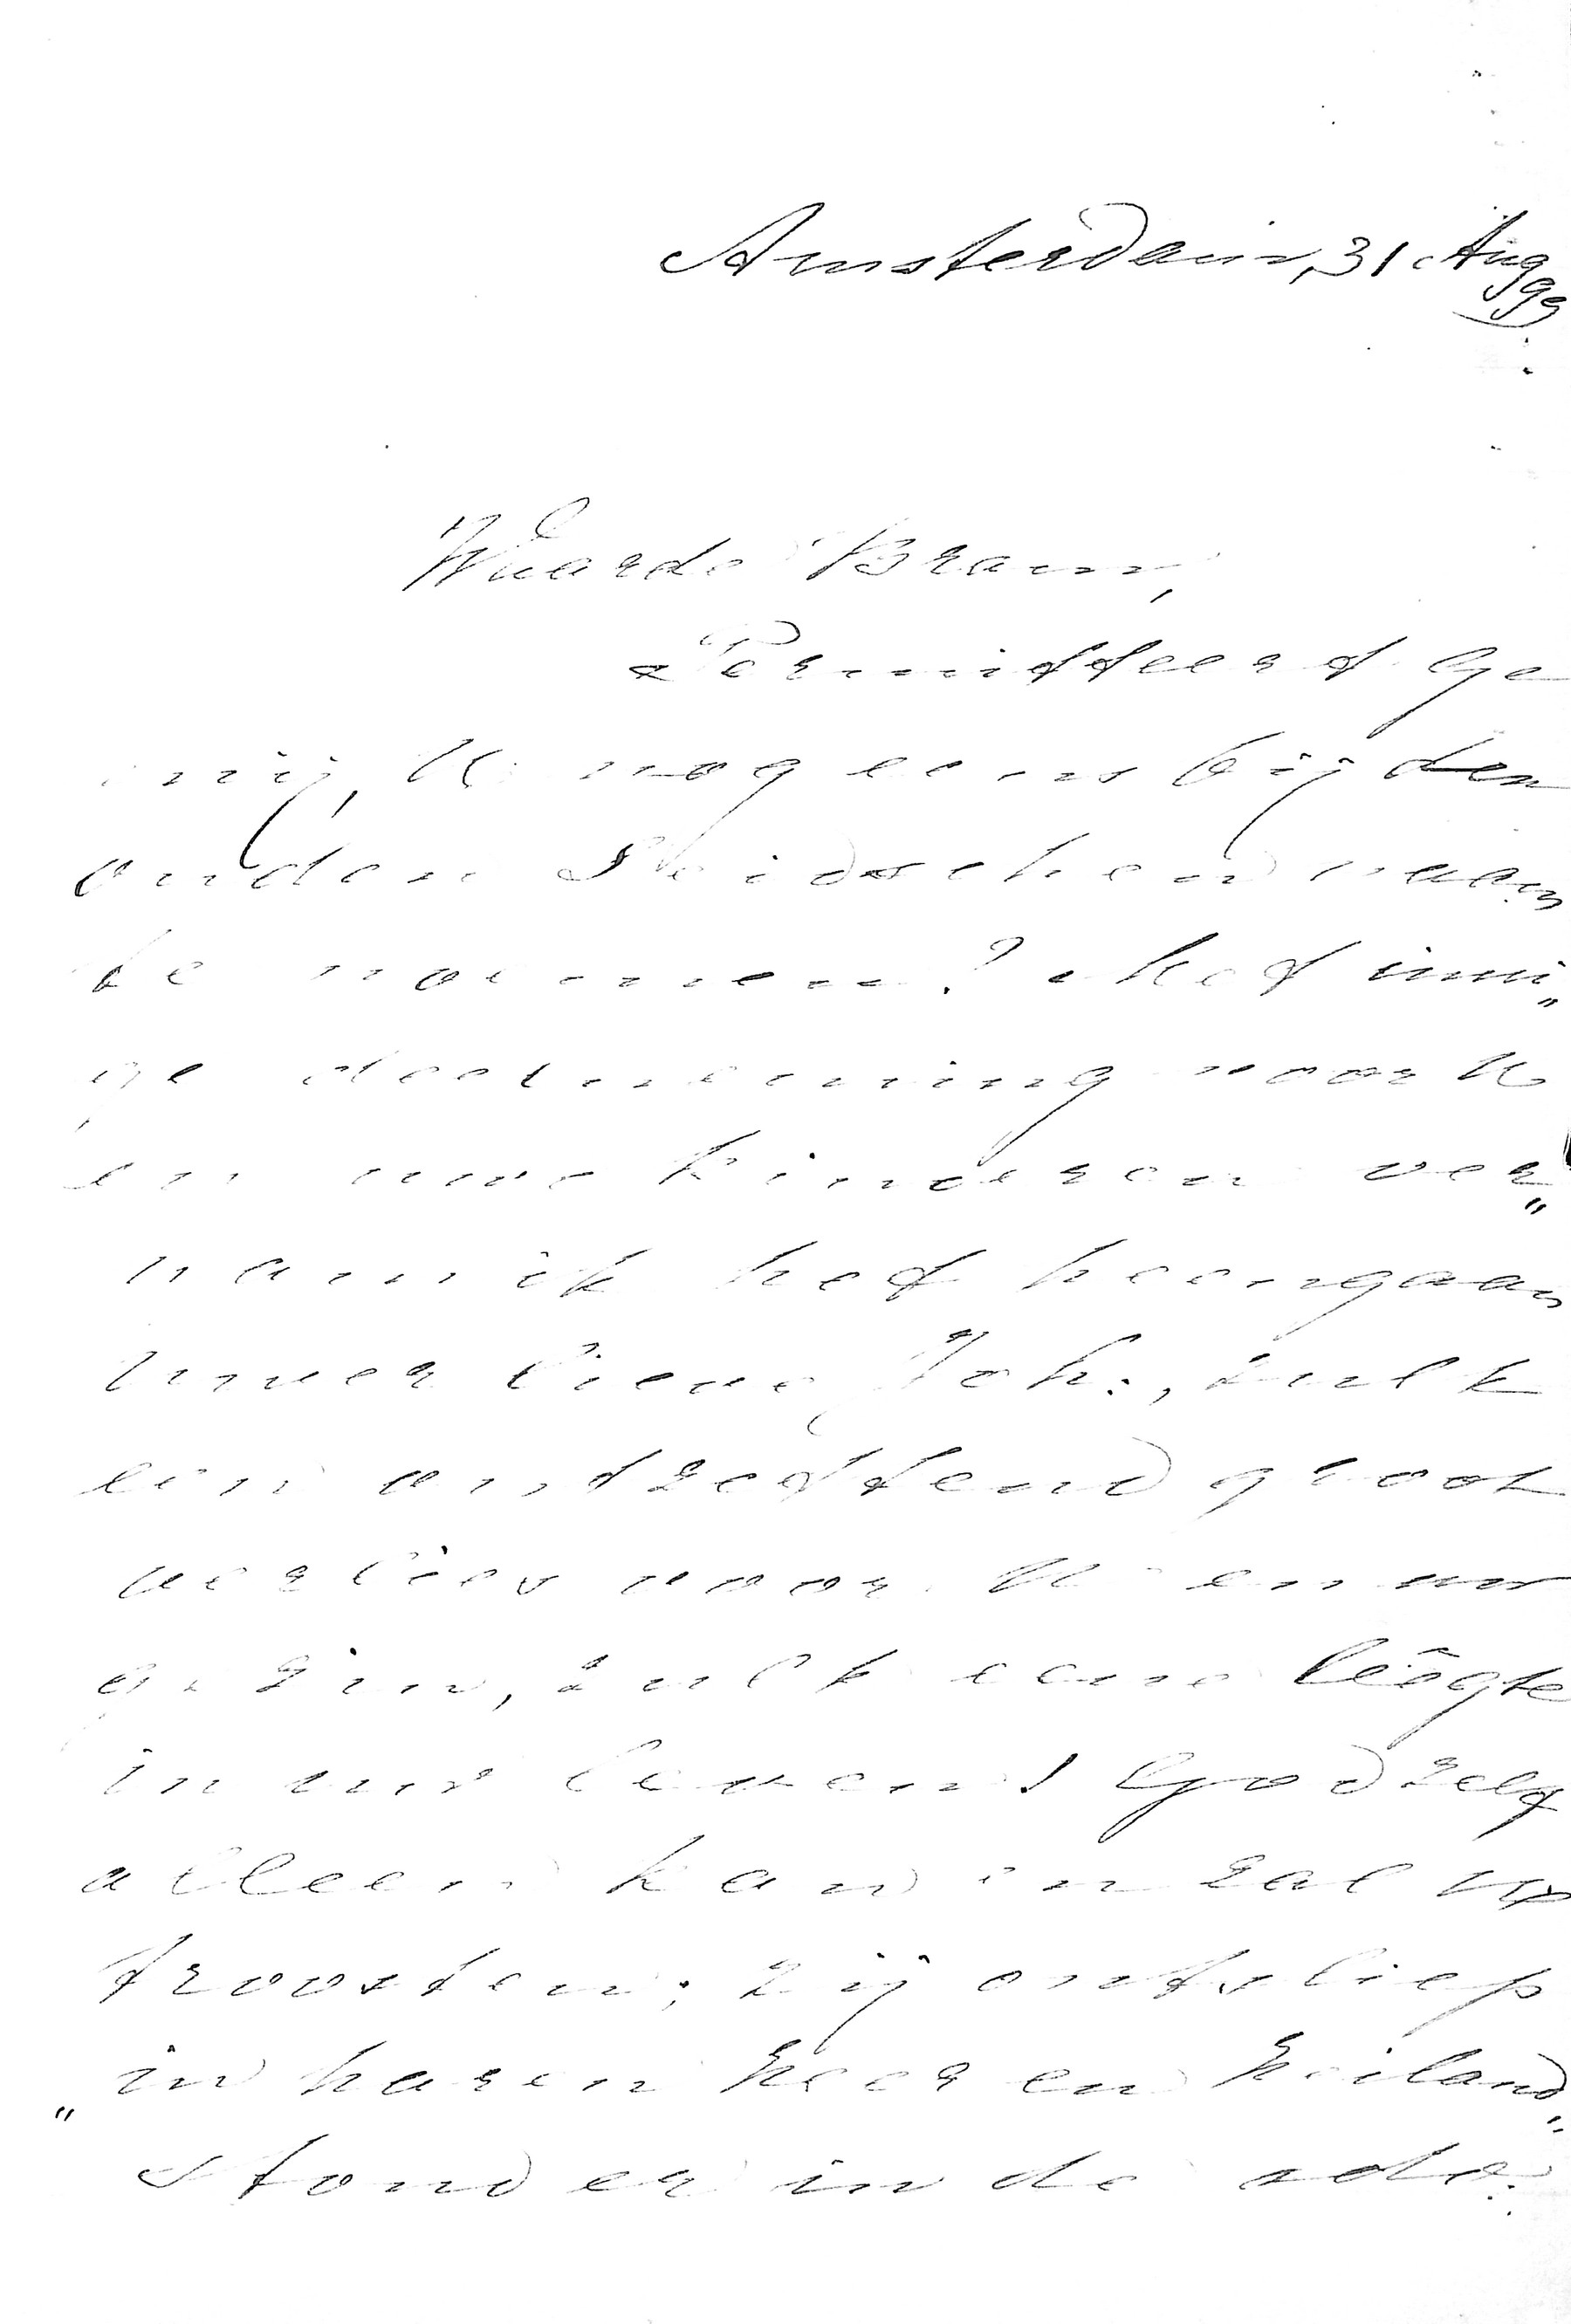 Amsterdam, 31 Aug
99
Waarde Bram,
Permitteert Ge
mij, U nog eens bij den
ouden Leidschen naam
te noemen? Met inni„
ge deelneming voor U
en uwe kinderen ver„
nam ik het heengaan
Uwer lieve Joh:, zulk
een ontzettend groot
verlies voor U en uw
gezin, zulk eene leêgte
in uw leven! God zelf
alleen kan en zal U
troosten; zij ontsliep
„in haren Heer en Heiland„
stond er in de adv: